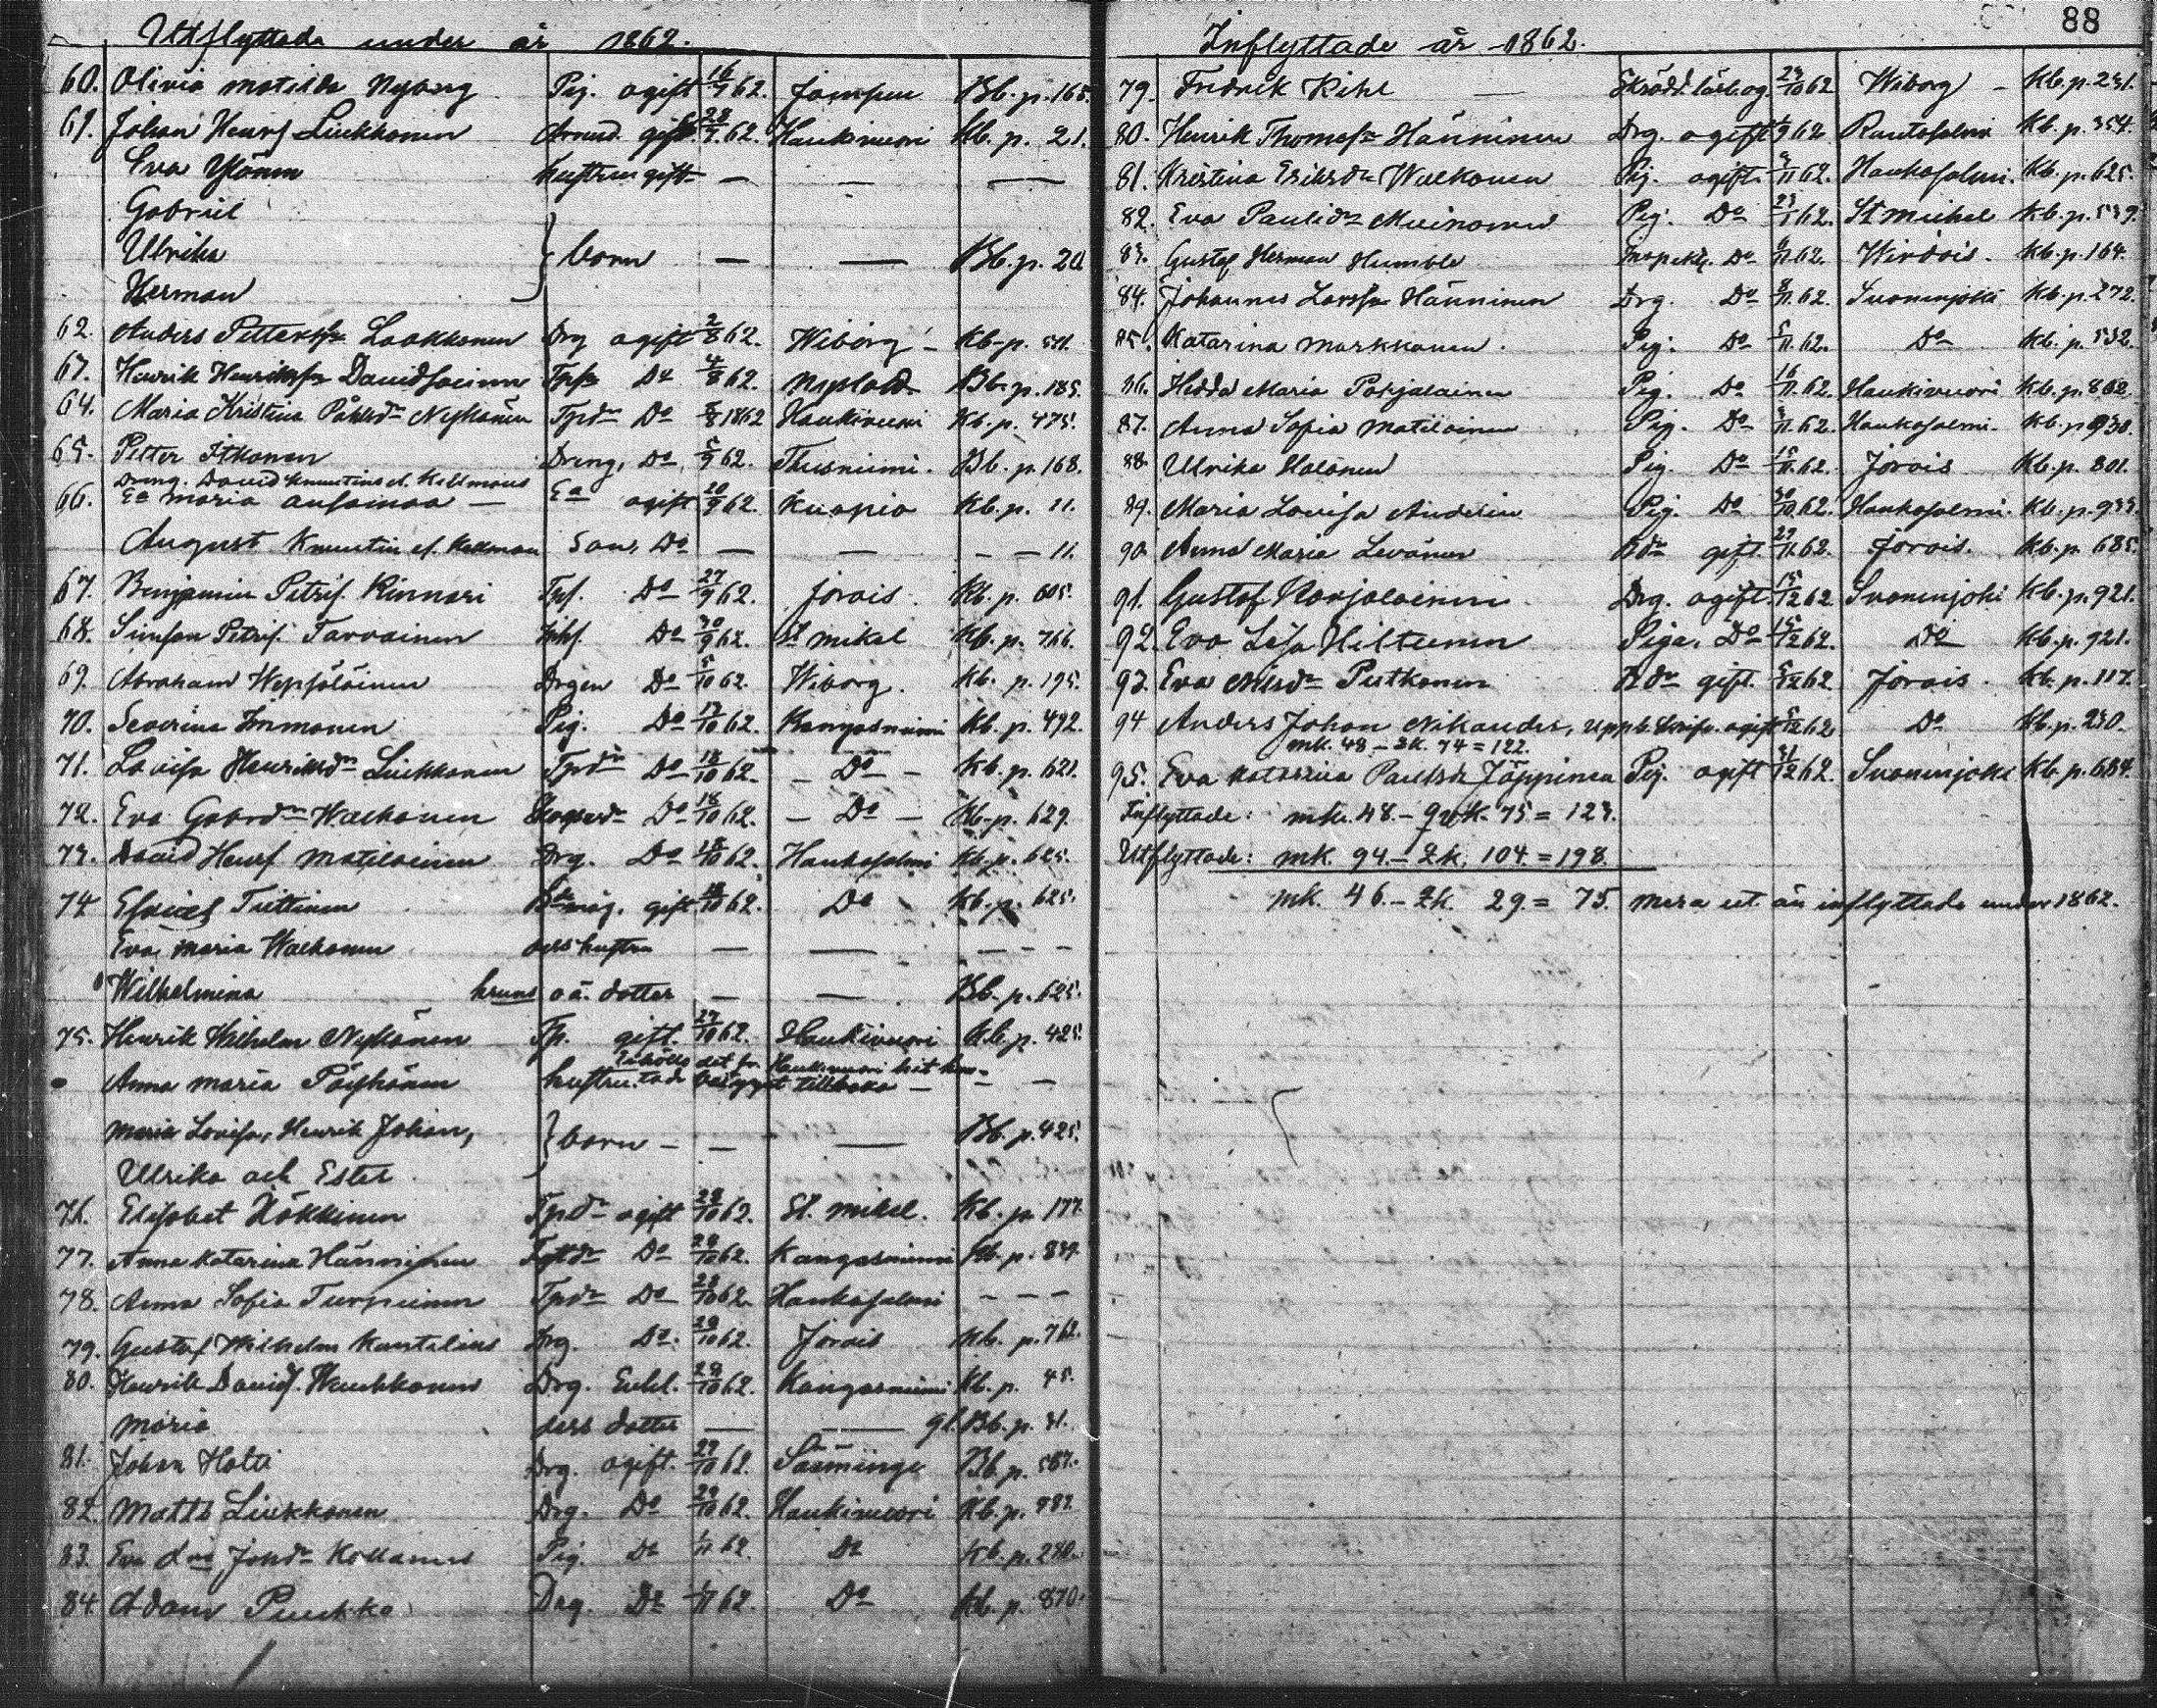 Utflyttade under år 1862.
60. Olivia Matilda Nyberg Pig. ogift 16/9 62. Jämsen Bb. p. 168.
61. Johan Henrs Liukkonen gift. 28/9 62. Haukivuori Kb. p. 21.
Eva Ylönen hustrun gift — — —
Gabriel
Ulrika } barn — — Bb. p. 20
Herman
62. Anders Petterss. Laakkonen Drg ogift 2/8 62. Wiborg – Kb. p. 511.
63. Henrik Henrikss. Davidsainen Do 4/8 62. Nyslott Bb. p. 185.
64. Maria Kristina Nykänen Tprdr Do 8/8 1862 Haukivuori Kb. p. 475.
65. Petter Itkonen Dreng, Do 5/9 62. Thusniemi. Bb. p. 168.
Dreng. David Knuutins el. Kellmans
66. Ea Maria Ansamaa — Ea ogift 20/9 62. Kuopio Kb. p. 11.
August Knuutin el. Kellman Son, Do — — – – 11.
67. Benjamin Petris. Kinnari Tps. Do 27/9 62. Jorois. Kb. p. 605.
68. Simson Petris. Tarvainen Do 30/9 62. St Mikel Kb. p. 766.
69. Abraham Wepsäläinen Drgen Do 5/10 62. Wiborg. Kb. p. 195.
70. Severina Immonen Pig. Do 17/10 62. Kangasniemi Kb. p. 492.
71. Lovisa Henriksdr Liukkonen Tprdr Do 18/10 62. – Do – Kb. p. 621.
72. Eva Gabrdr Walkonen Do 18/10 62. – Do – Kb. p. 629.
73. David Henrs Matilainen Drg. Do 18/10 62. Hankasalmi Kb. p. 625.
74 Tiittinen gift. 18/10 62. Do Kb. p. 625.
Eva Maria Walkonen ders hustru — — – – –
Wilhelmina hruns o ä. dotter — — Bb. p. 625.
75. Henrik Wilhelm Nykänen Tp. gift. 27/10 62. Haukivuori Kb. p. 425.
Anna Maria Pöyhönen hustru. tillbaka — – —
Maria Lovisa, Henrik Johan, } barn – — — Bb. p. 425.
Ulrika och Ester
76. Elisabet Häkkinen Tpdr ogift 28/10 62. St. Mikel. Kb. p. 177.
77. Anna Katarina Hänninen Do 28/10 62. Kangasniemi Kb. p. 839.
78. Anna Sofia Turpeinen Tpdr Do 28/10 62. Hankasalmi – – –
79. Gustaf Wilhelm Kantelius Drg. Do. 28/10 62. Jorois Kb. p. 762.
80. Henrik Davids. Drg. Enkl. 28/10 62. Kangasniemi Kb. p. 45.
Maria ders dotter — — gl. Bb. p. 31.
81. Johan Holti Drg. ogift. 29/10 62. Sääminge Bb. p. 587.
82. Matts Liukkonen Drg. Do 29/10 62. Haukivuori Kb. p.
83. Eva Johdr Pig. Do 1/11 62. Do Kb. p. 280.
84 Adam Puukko Drg. Do 1/11 62. Do Kb. p. 870.
88
Inflyttade år 1862.
79. Fredrik Kihl — og. 23/10 62 Wiborg – Kb. p. 231.
80. Henrik Thomass. Hänninen Drg. ogift 1/9 62 Rantasalmi Kb. p. 354.
81. Kristina Eriksdr Walkonen Pig. ogift. 9/11 62. Hankasalmi. Kb. p. 625.
82. Eva Paulidr Muinonen Pig. Do 62. St Michel Kb. p. 539.
83. Gustaf Herman Humble Inspekt. Do 62. Wirdois. Kb. p. 164.
84. Johannes Larss. Hänninen Drg. Do 8/11 62. Suonenjoki Kb. p. 272.
85. Katarina Markkanen. Pig. Do 5/11 62. Do Kb. p. 532.
86. Hedda Maria Pohjalainen Pig. Do 16/11 62. Haukivuori Kb. p. 862.
87. Anna Sofia Matilainen Pig. Do 62. Hankasalmi. Kb. p. 930.
88. Ulrika Halonen Pig. Do 15/11 62. Jorois Kb. p. 801.
89. Maria Lovisa Andelin Pig. Do 30/10 62. Hankasalmi. Kb. p. 933.
90. Anna Maria Levänen gift. 27/11 62. Jorois. Kb. p. 685.
91. Gustaf Karjalainen. Drg. ogift. 15/12 62 Suonenjoki Kb. p. 921.
92. Eva Lisa Hiltunen Piga. Do 15/12 62. Do Kb. p. 921.
93. Eva Putkonen gift. 5/12 62 Jorois. Kb. p. 117.
94 Anders Johan Nikander, ogift 5/12 62, Do Kb. p. 230.
mk. 48 – 2k. 74 = 122.
95. Eva Katarina Paulsdr Jäppinen Pig. ogift 31/12 62. Suonenjoki Kb. p. 684.
Inflyttade: mk. 48. – qvk. 75 = 123.
Utflyttade: mk. 94. – 2k. 104. = 198.
mk. 46. – 2k. 29. = 75. mera ut än inflyttade under 1862.